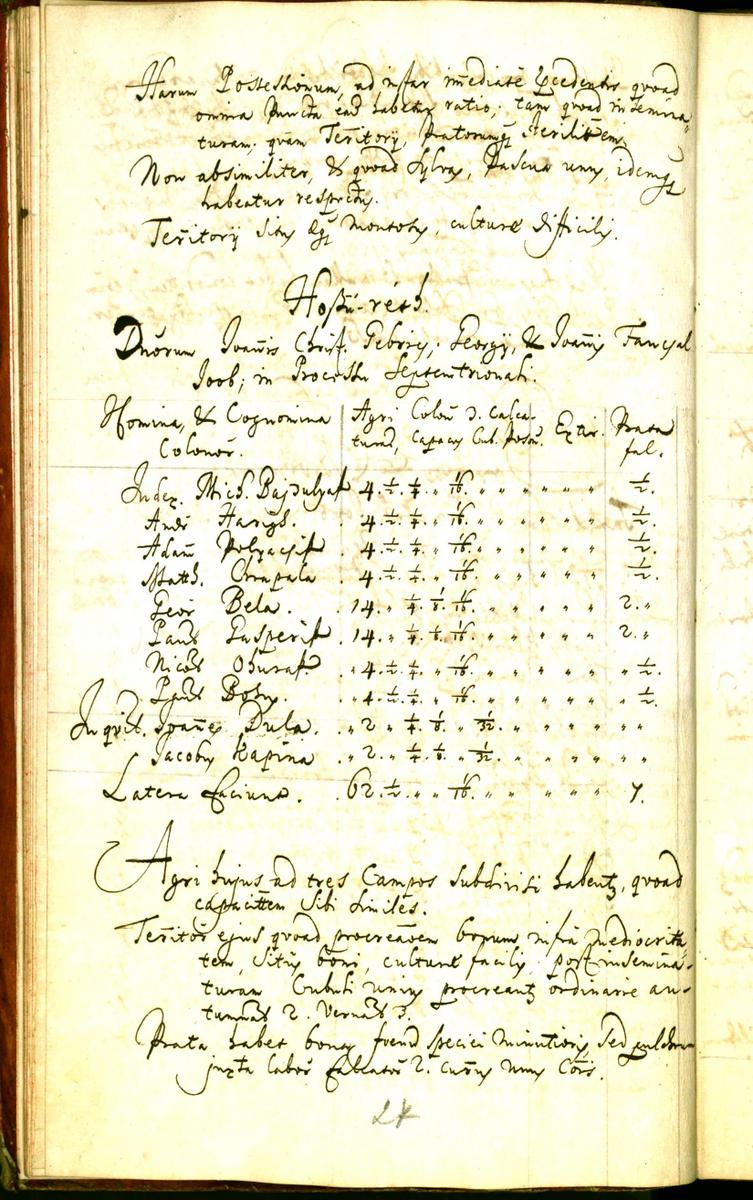 Harum Possessionum, ad instar imediatè pcedentis qvoad
omnia Puncta ead habetur ratio; tam qvoad insemina-
turam, qvàm Teritorÿ, Pratorumq sterilitem.
Non absimiliter, & qvoad Sylvas, Pascua unus, idemq
habeatur respectus.
Teritorÿ situs montosus, culturæ difficilis.
Hoszú-réth.
Dnorum Ioañis Christ. Georgÿ, & Ioañis Fancsal
Joob; in Processu Septemtrionali.
Nomina, & Cognomina Agri Colon. calca- Extir. Prata
Colonor. turas, capaces Cub. Poson. fal.
Judex. Mich. Bajdulyak 4. ½. ¼. „ 1/16. „ „ „ „ „ „ ½.
Andr. . 4. ½. ¼. „ 1/16. „ „ „ „ „ „ ½.
Adam . 4. ½. ¼. „ 1/16. „ „ „ „ „ „ ½.
Matth. Chrapala . 4. ½. ¼. „ 1/16. „ „ „ „ „ „ ½.
Geor Bela . . 14. „ ¼. ⅛. 1/16. „ „ „ „ „ 2. „
Paul Gasperik . 14. „ ¼. ⅛. 1/16. „ „ „ „ „ 2. „
Nicol Ohurak . „ 4. ½. ¼. „ 1/16. „ „ „ „ „ „ ½.
Paul . „ 4. ½. ¼. „ 1/16. „ „ „ „ „ „ ½.
Inqvil. Ioañes Dula . . „ 2 „ ¼. ⅛. „ 1/32. „ „ „ „ „ „
Jacobus Kapina . „ 2. „ ¼. ⅛. „ 1/32. „ „ „ „ „ „
Latera faciunt . . 62. ½. „ „ 1/16. „ „ „ „ „ 7.
Agri hujus ad tres Campos subdivisi habentur, qvoad
capacitem sibi similes.
Teritor ejus qvoad procreaõem bonum, infra mediocrita-
tem, situs boni, culturæ facilis, post insemina-
turam Cubuli unius procreant ordinariè au-
tumnat 2. Vernat 3.
Prata habet bona, foeni speciei minutioris, sed
juxta labor falcator 2. currus unus Cõis.
24